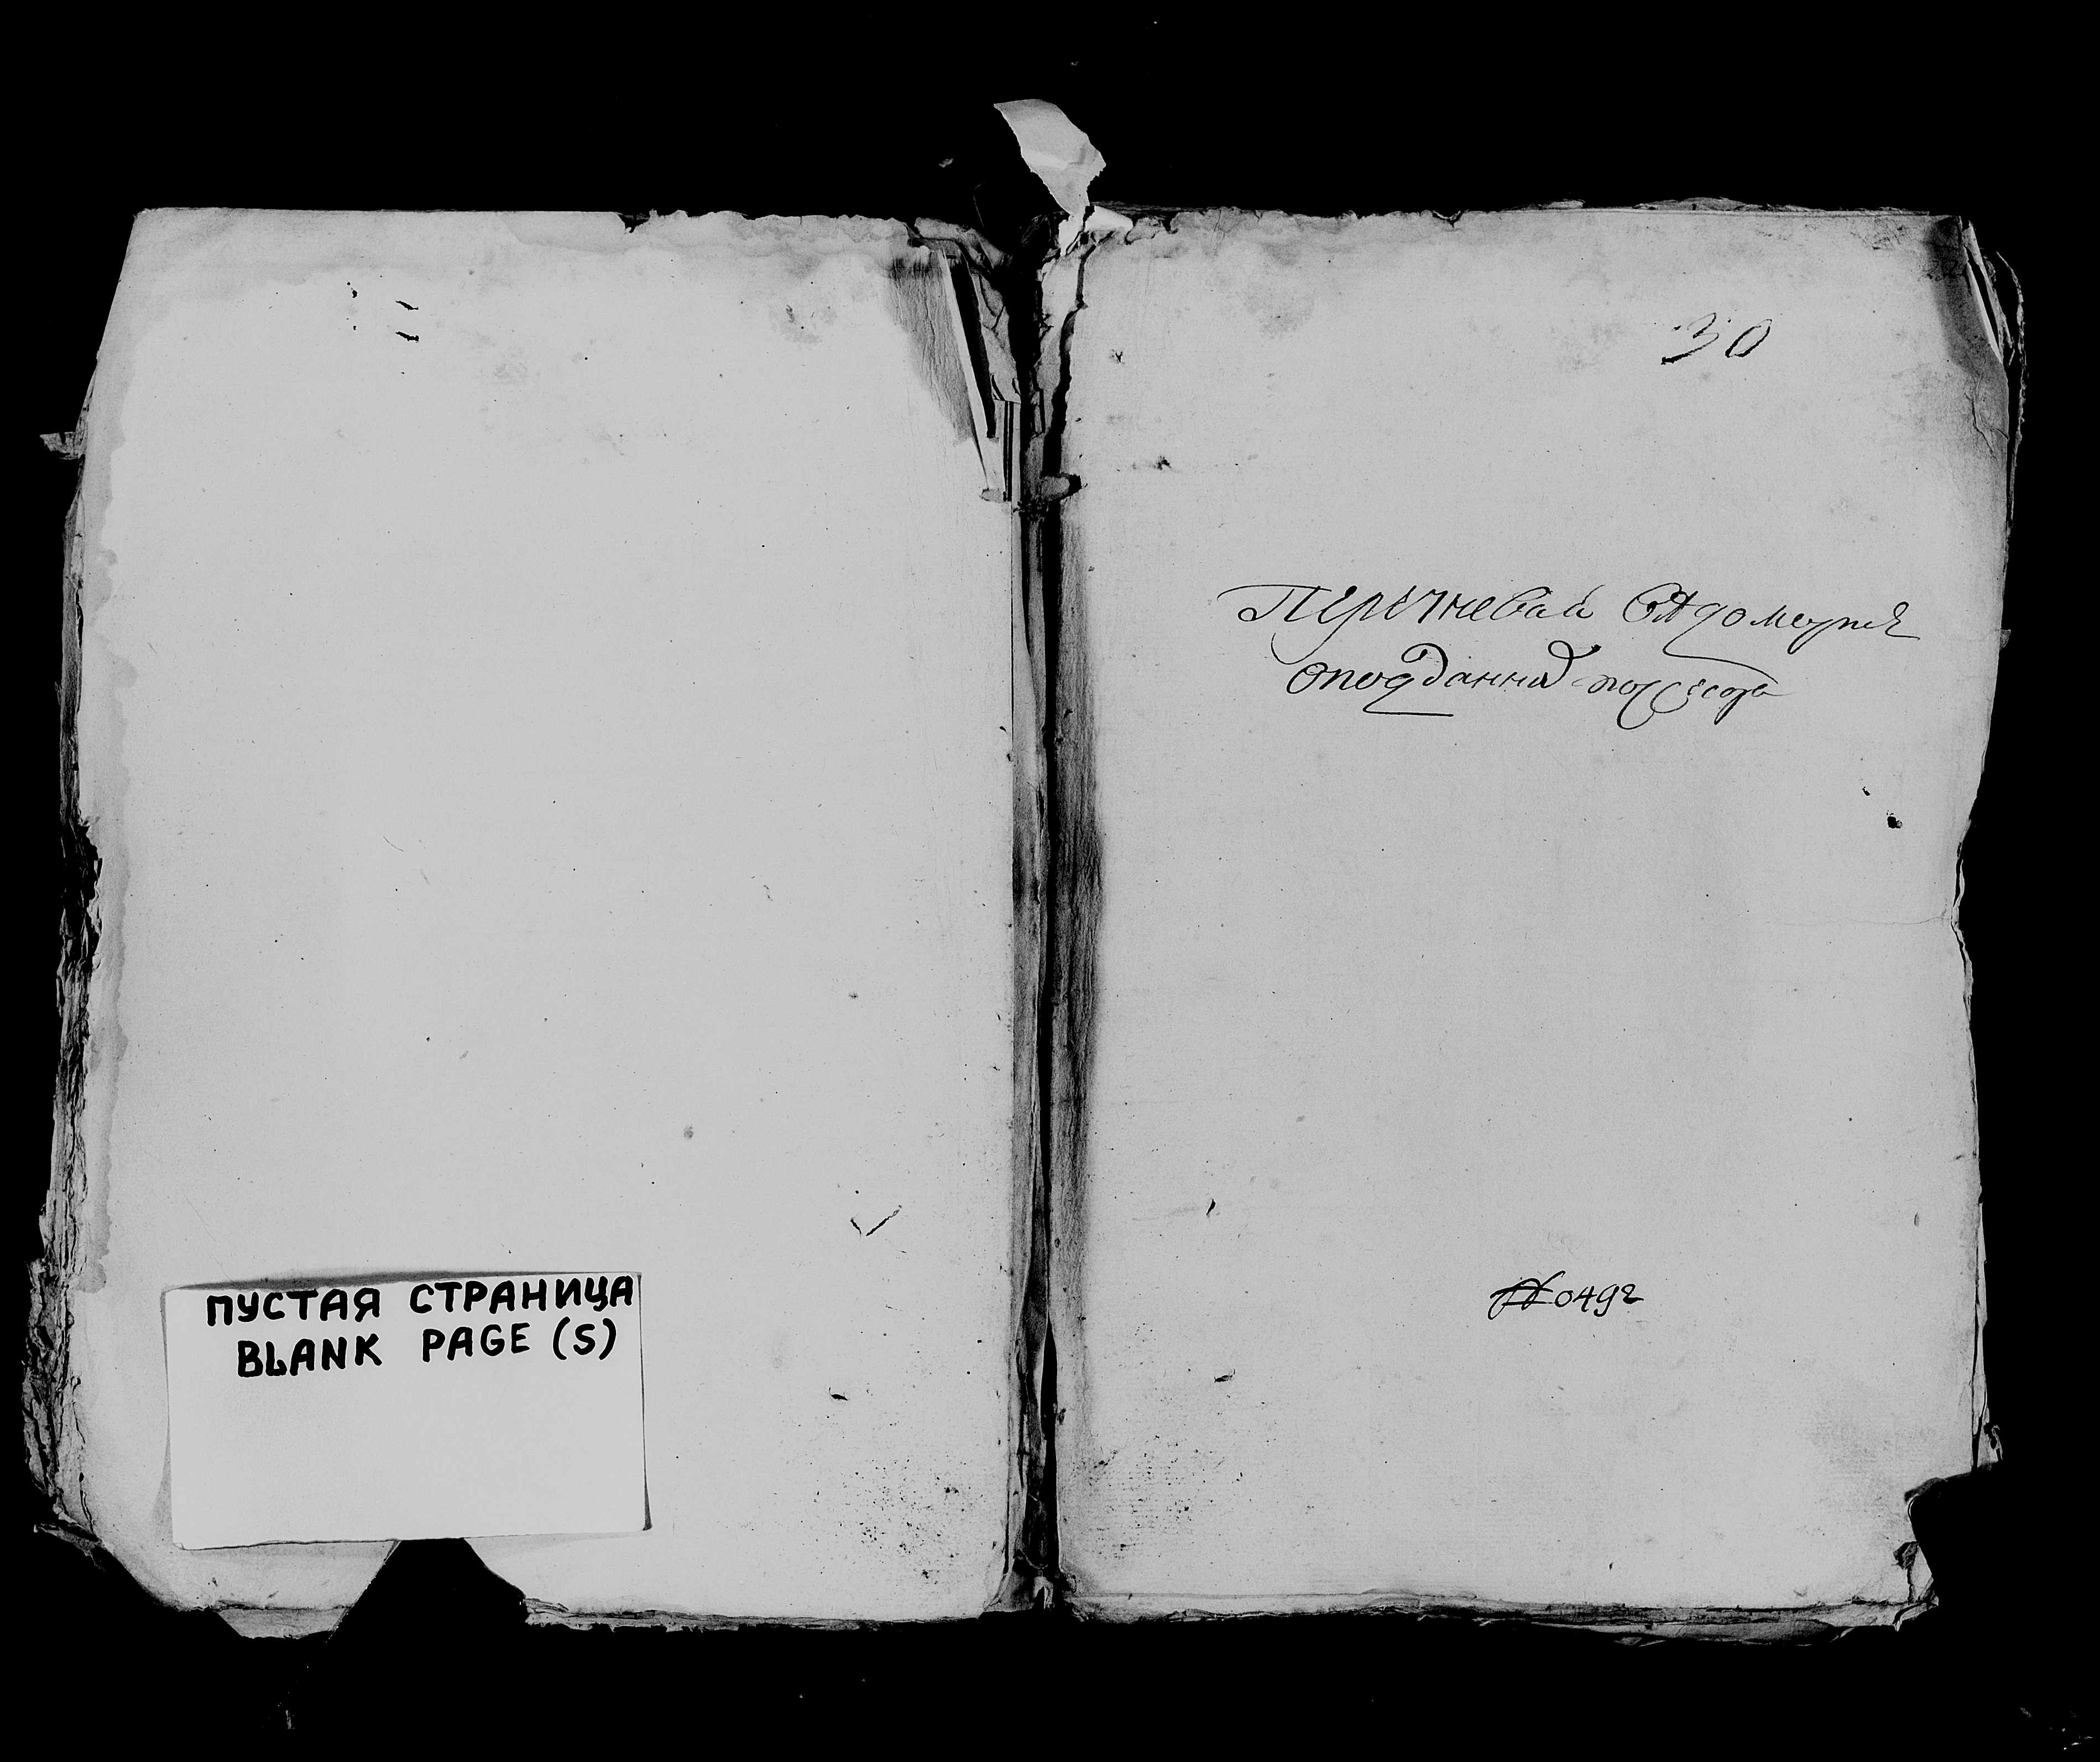 ПУСТАЯ СТРАНИЦА
BLANK PAGE (S)
30
Перечневая ведомерия
оподданной
№ 0492